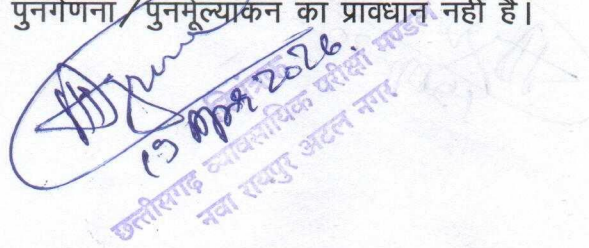 पुनर्गणना / पुनर्मूल्यांकन का प्रावधान नहीं है।
19 Apr 2026.
छत्तीसगढ़ व्यावसायिक परीक्षा मण्डल
नवा रायपुर अटल नगर